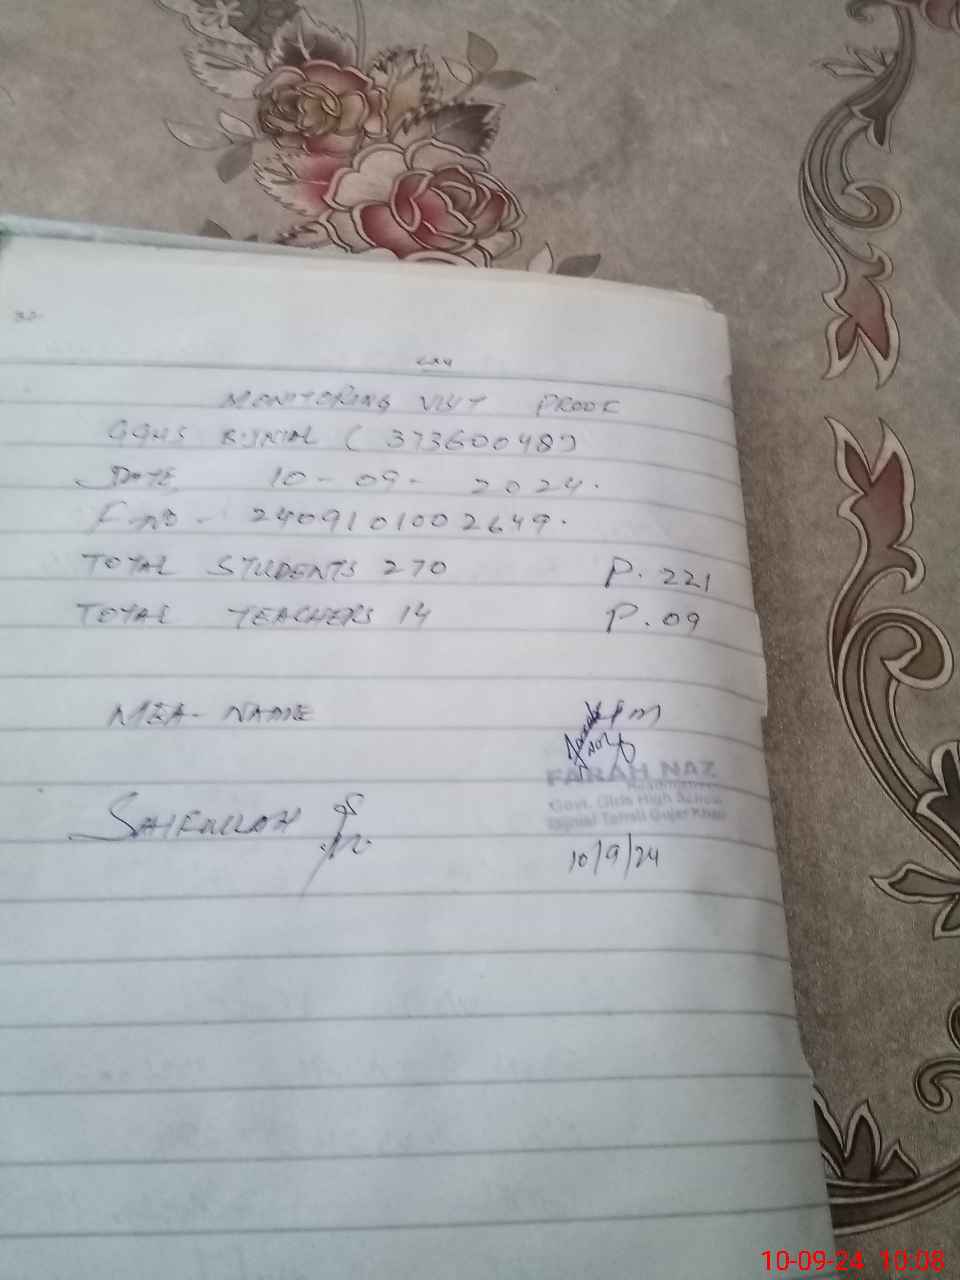 MONITORING VISIT PROOF
GGHS BUNIAL (37360048)
DATE 10-09-2024.
F-NO - 2409101002649.
TOTAL STUDENTS 270 P. 221
TOTAL TEACHERS 14 P. 09
MEA- NAME
SAIFULLAH
FARAH NAZ
Headmistress
Govt. Girls High School
Tehsil Gujar Khan
10/9/24
10-09-24 10:08